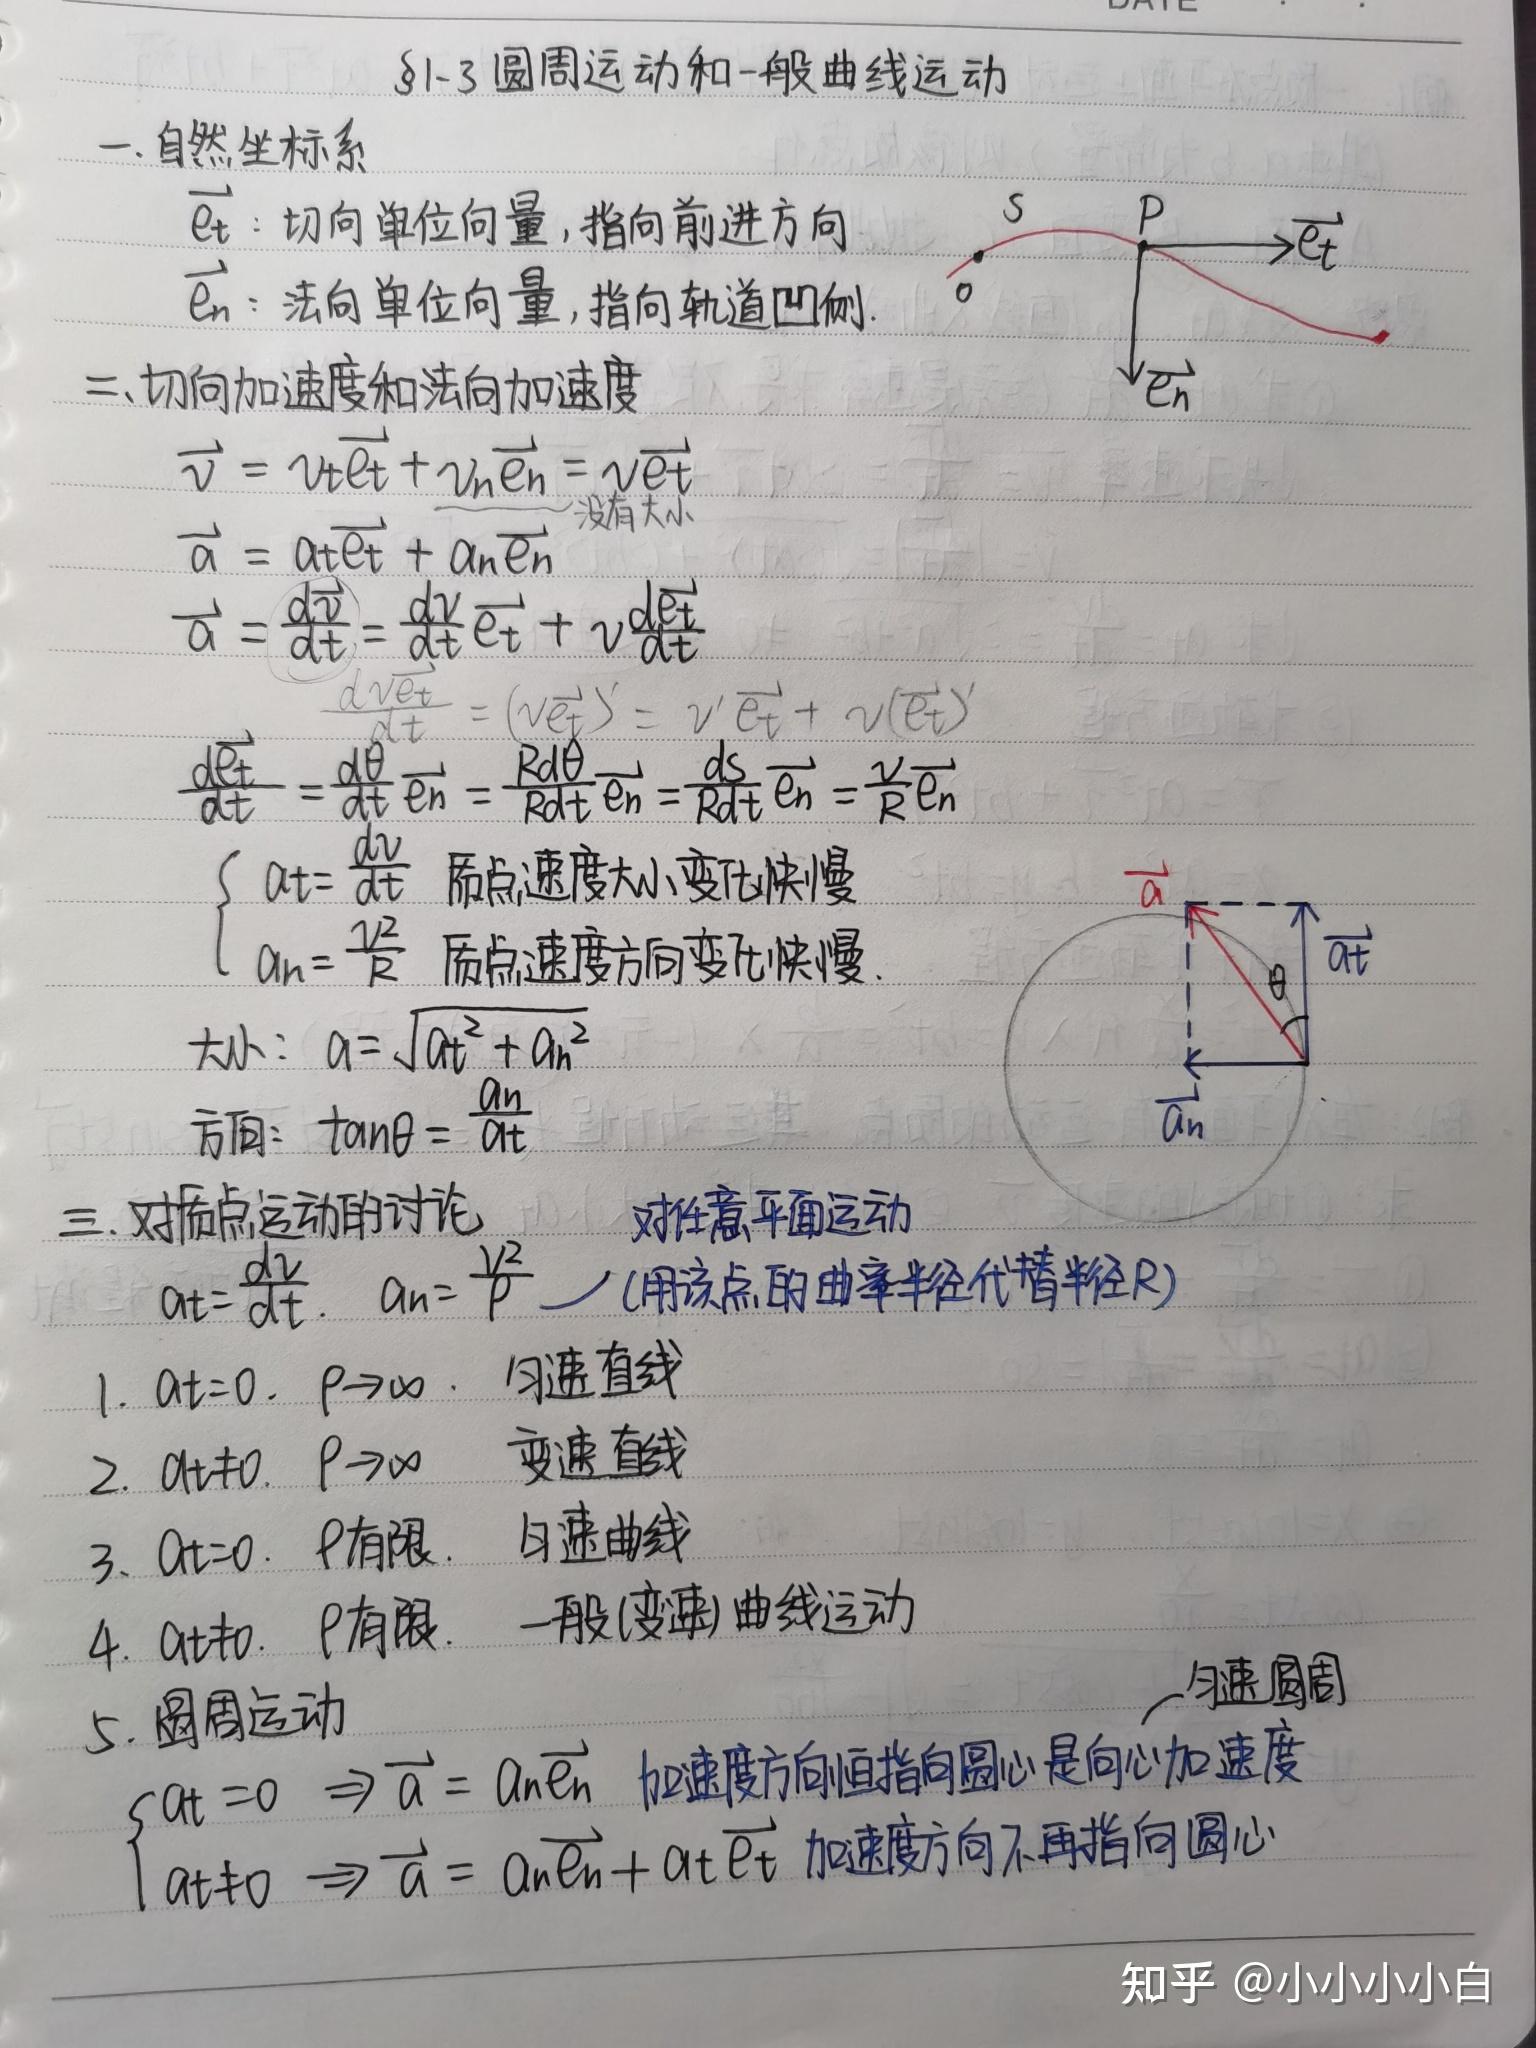 DATE
§1-3 圆周运动和一般曲线运动
一. 自然坐标系
e⃗t : 切向单位向量, 指向前进方向
e⃗n : 法向单位向量, 指向轨道凹侧.
S P e⃗t
o
e⃗n
二、切向加速度和法向加速度
v⃗ = vt e⃗t + vn e⃗n = v e⃗t
没有大小
a⃗ = at e⃗t + an e⃗n
a⃗ = dv⃗/dt = dv/dt e⃗t + v de⃗t/dt
dve⃗t/dt = (ve⃗t)' = v' e⃗t + v(e⃗t)'
de⃗t/dt = dθ/dt e⃗n = Rdθ/Rdt e⃗n = ds/Rdt e⃗n = v/R e⃗n
at = dv/dt 质点速度大小变化快慢
an = v²/R 质点速度方向变化快慢.
a⃗
θ a⃗t
a⃗n
大小: a = √(at² + an²)
方向: tanθ = an/at
三. 对质点运动的讨论 对任意平面运动
at = dv/dt. an = v²/ρ (用该点的曲率半径代替半径R)
1. at=0. ρ→∞. 匀速直线
2. at≠0. ρ→∞ 变速直线
3. at=0. ρ有限. 匀速曲线
4. at≠0. ρ有限. 一般(变速)曲线运动
5. 圆周运动 匀速圆周
at=0 ⇒ a⃗ = an e⃗n 加速度方向恒指向圆心是向心加速度
at≠0 ⇒ a⃗ = an e⃗n + at e⃗t 加速度方向不再指向圆心
知乎 @小小小小白